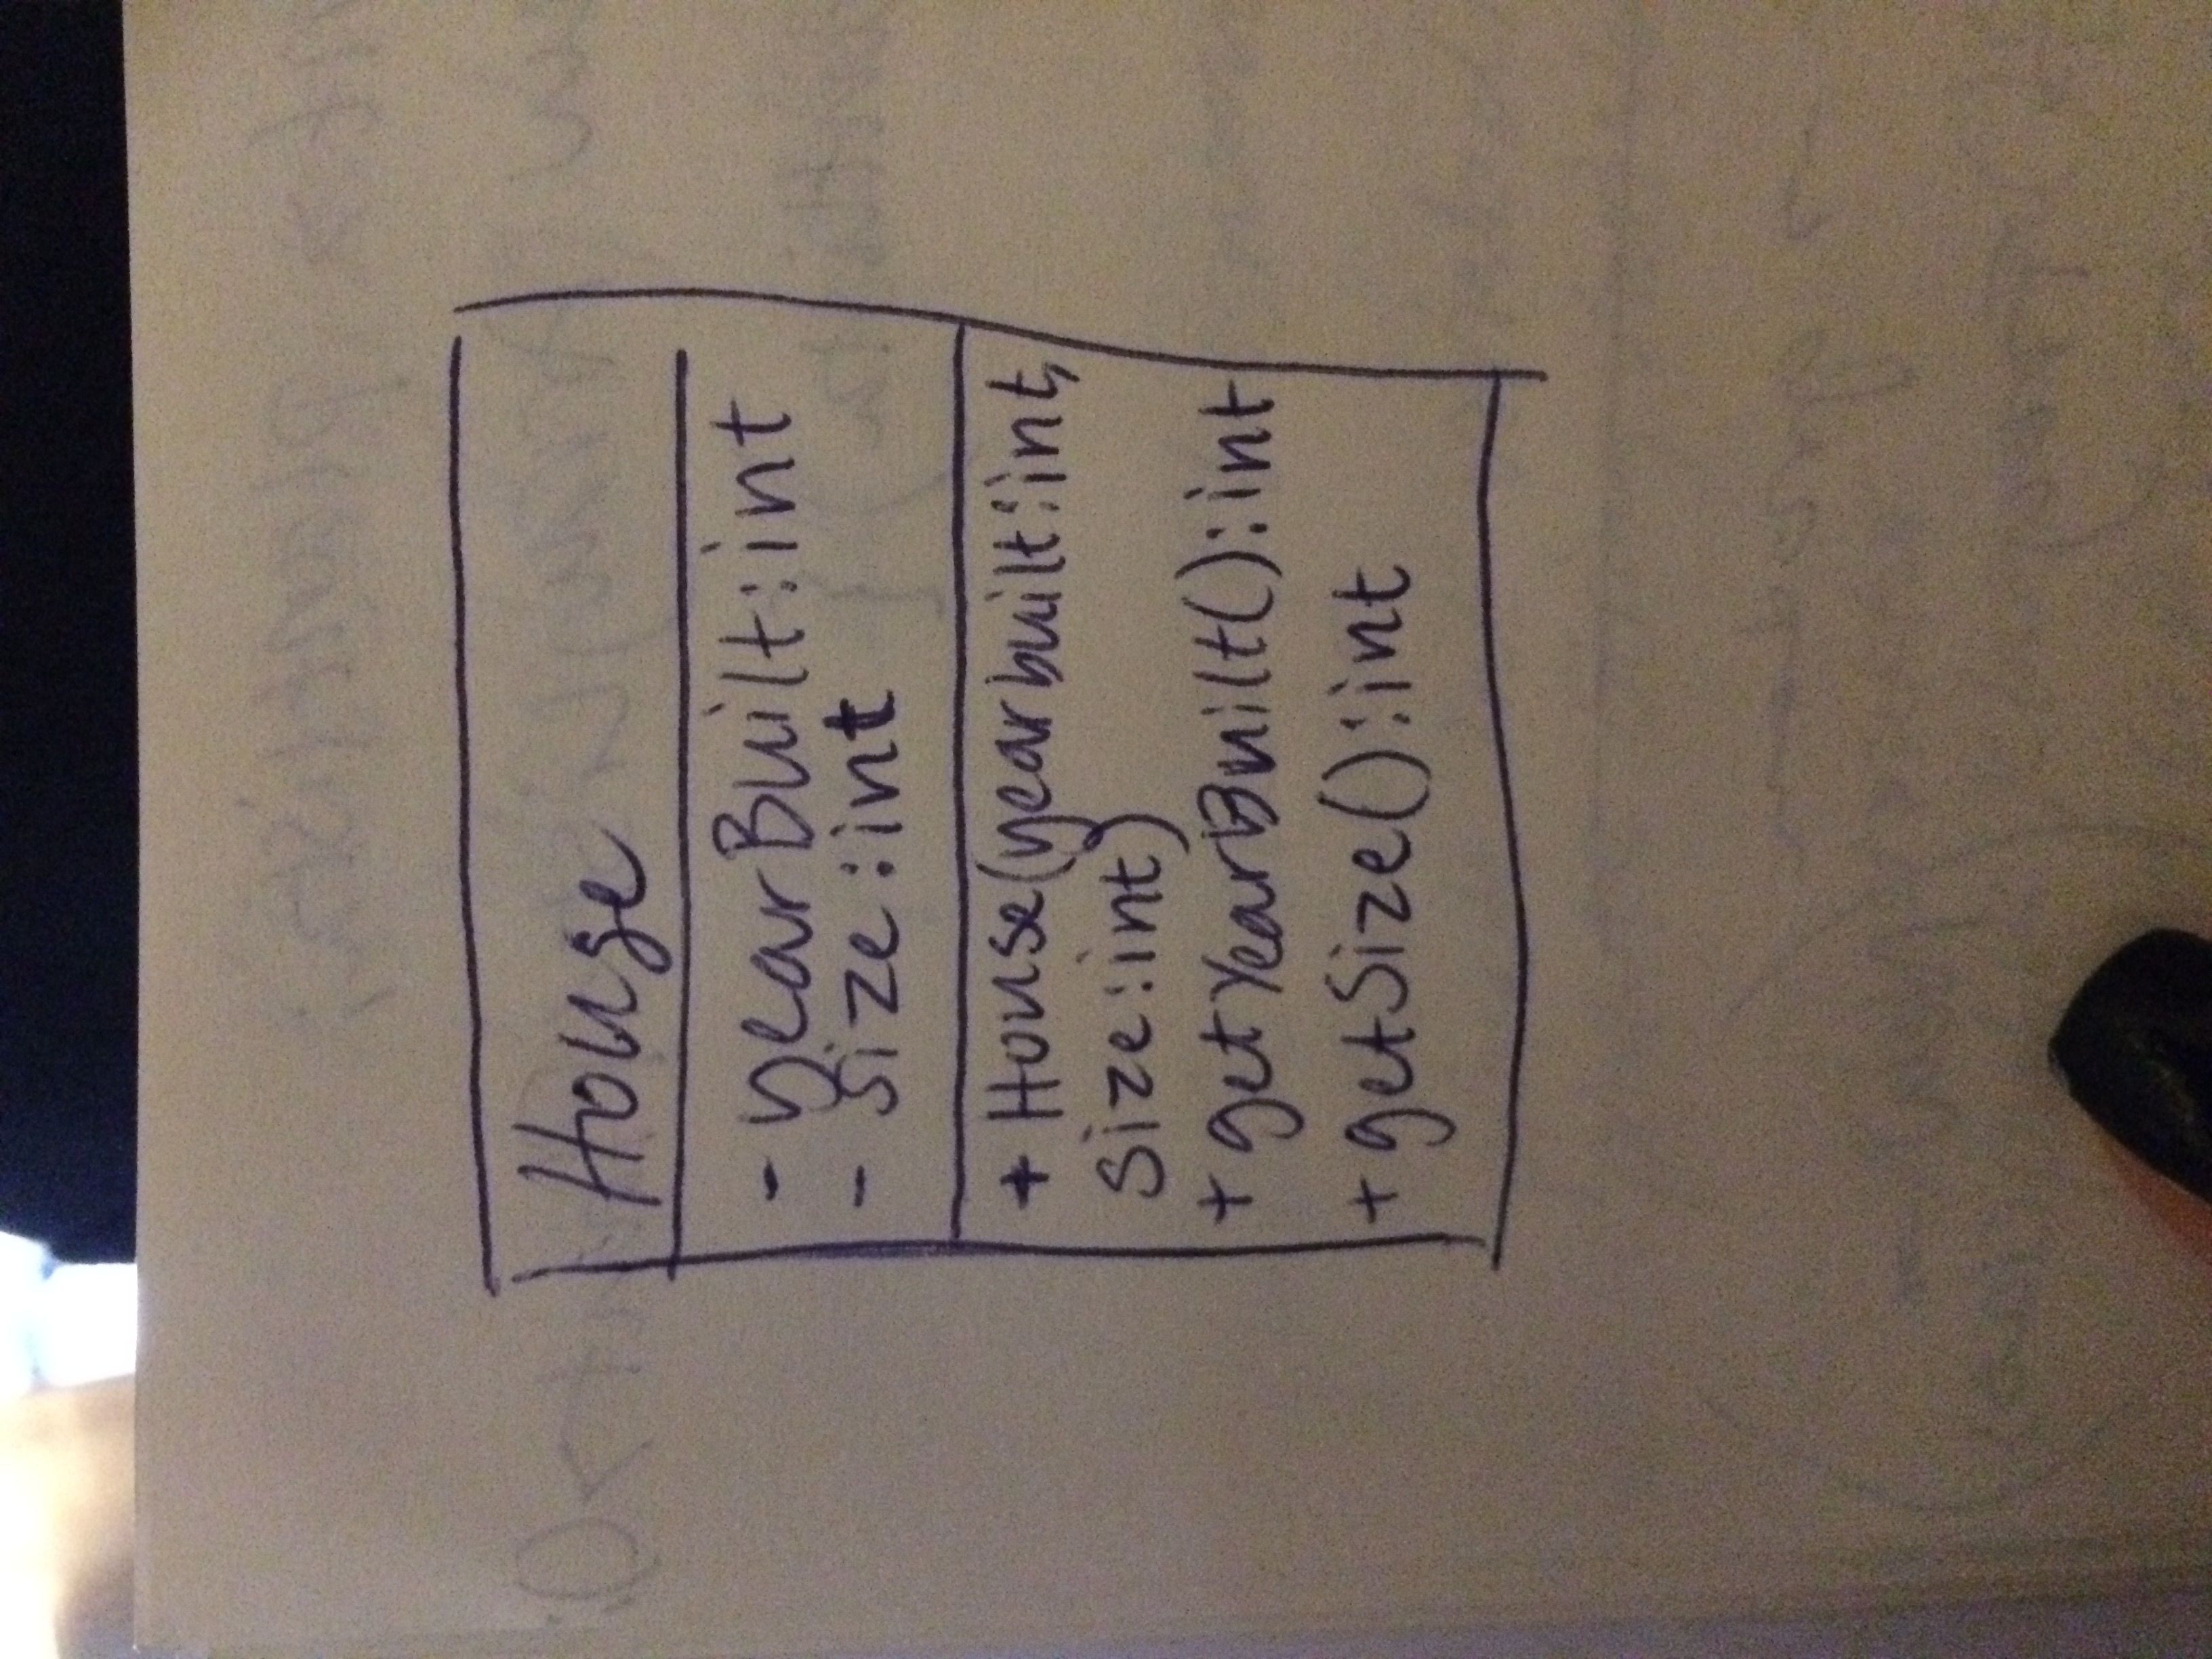 House
- yearBuilt:int
- size:int
+ House(yearbuilt:int,
size:int)
+ getYearBuilt():int
+ getSize():int